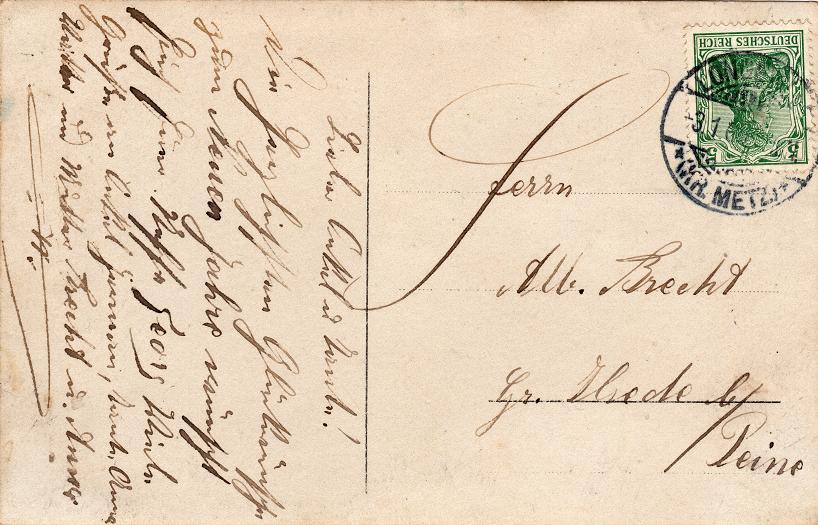 Liebe Onkel u Tante!
Die herzlichsten Glückwünsche
zum Neuen Jahre wünscht
Euch Euer Neffe Georg
Grüße an Onkel Hermann, Tante Anna
und Mutter Brecht u.
Herrn
Alb. Brecht
Gr. Ilsede b/
Peine
DEUTSCHES REICH
5 5
(KR. METZ)